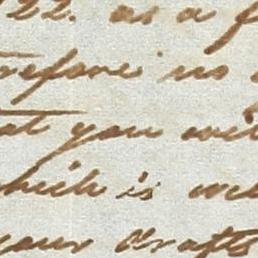 22. as a f
refore no
at you wil
which is we
your drafts